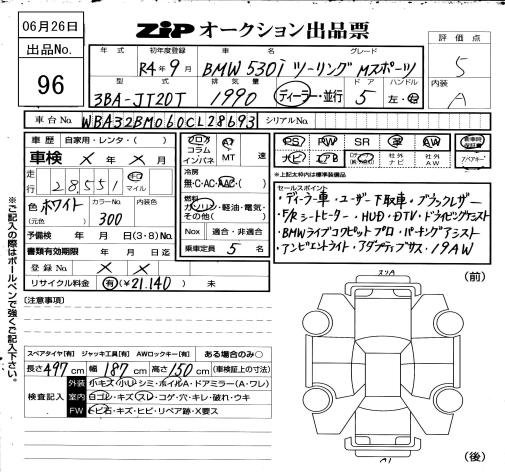 06月26日
ZIP オークション出品票
出品No.
96
年式 初年度登録 車名 グレード
R4年9月 BMW 530i ツーリング Mスポーツ
評価点
5
内装
A
型式 排気量 ドア ハンドル
3BA-JT20T 1990 ディーラー・並行 5 左・右
車台No. WBA32BM060CL28693 シリアルNo.
車歴 自家用・レンタ・( )
車検 × 年 × 月
走行 28,551 キロ マイル
色 ホワイト (元色) カラーNo. 300 内装色
予備検 年 月 日(3・8)Mo.
書類有効期限 年 月 日
登録No. × ×
リサイクル料金 有(¥21,140) 未
フロア コラム インパネ AT MT 速
冷房 無・C・AC・AAC・( )
燃料 ガソリン・軽油・電気・その他( )
Nox 適合・非適合
乗車定員 5 名
PS PW SR 革 AW
ナビ エアB 社外ナビ 社外AW
新車時保証書 スペアキー
*上記太わくは標準装備品
セールスポイント
・ディーラー車・ユーザー下取車・ブラックレザー
・F/Rシートヒーター・HUD・DTV・ドライビングアシスト
・BMWライブコクピットプロ・パーキングアシスト
・アンビエントライト・アダプティブサス・19AW
[注意事項]
スペアタイヤ[有] ジャッキ工具[有] AWロックキー[有] ある場合のみ○
長さ497cm 幅187cm 高さ150cm (車検証上の寸法)
検査記入
外装 小キズ・小U・シミ・ホイルA・ドアミラー(A・ワレ)
室内 ヨゴレ・キズ・スレ・コゲ・穴・キレ・破れ・ウキ
FW トビ石・キズ・ヒビ・リペア跡・X要ス
※ご記入の際はボールペンで強くご記入下さい。
(前)
(後)